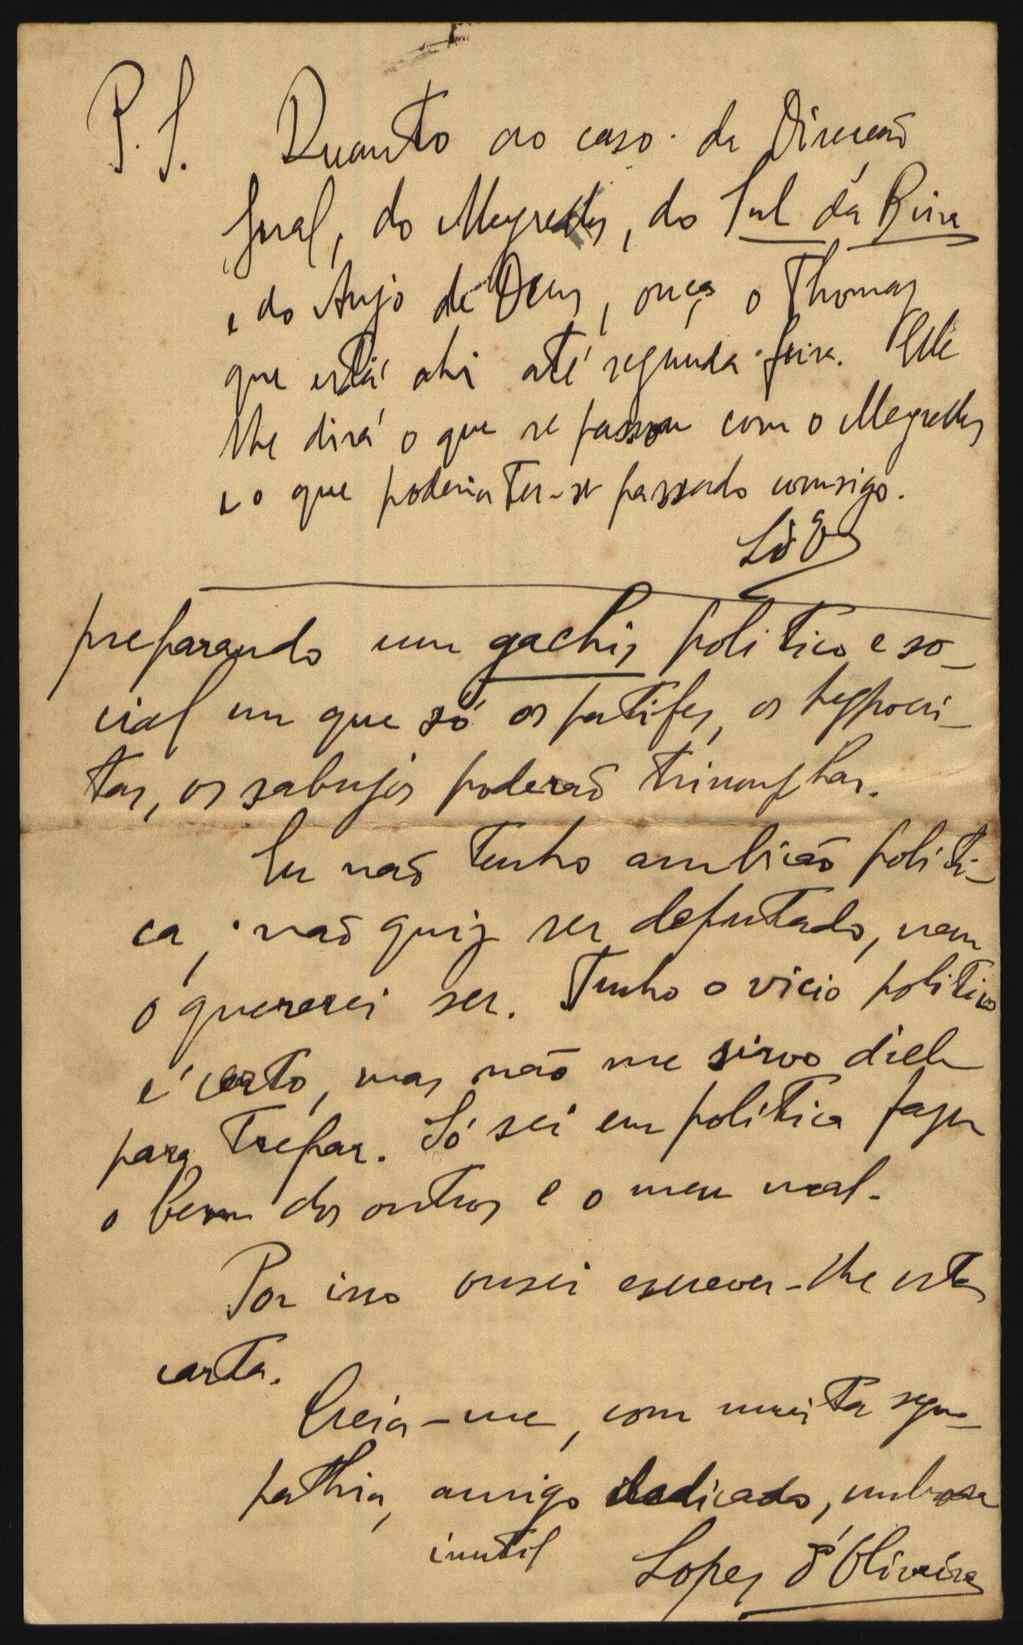 P.S. Quanto ao caso da Direcção
Geral, do Meyrelles, do Sul da Beira
e do Anjo de Deus, ouça o Thomaz
que está ahi até segunda-feira. Elle
lhe dirá o que se passou com o Meyrelles
e o que poderia ter-se passado comsigo.
preparando um gachis politico e so-
cial em que só os patifes, os hyppocri-
tas, os sabujos poderão triumphar.
Eu não tenho ambição politi-
ca; não quiz ser deputado, nem
o quererei ser. Tenho o vicio politico
é certo, mas não me sirvo d'elle
para trepar. Só sei em politica fazer
o bem dos outros e o meu mal.
Por isso ousei escrever-lhe esta
carta.
Creia-me, com muita sym-
pathia, amigo dedicado, embora
inutil
Lopes d'Oliveira